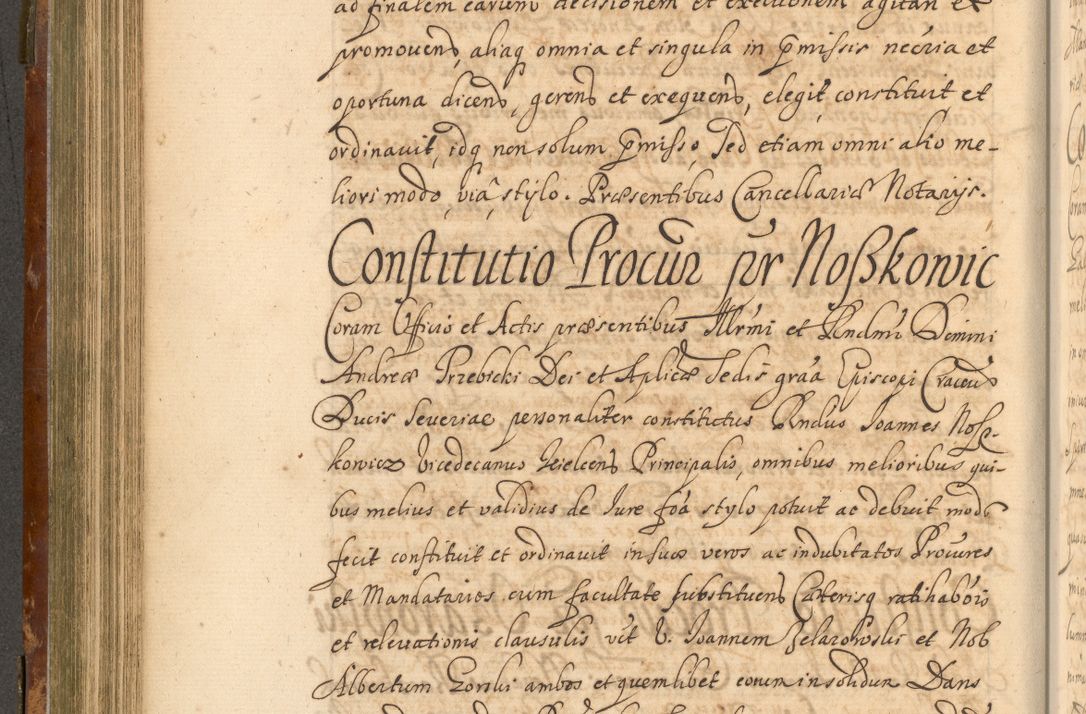 ad finalem earum decisionem et executionem agitan et
promouend, aliaq omnia et singula in pmissis necria et
oportuna dicend, gerend et exequend, elegit constituit et
ordinauit, idq non solum pmisso, sed etiam omni alio me-
liori modo, via, stylo. Præsentibus Cancellariæ Notarijs.
Constitutio Procur pr Noßkowic
Coram Officio et Actis præsentibus Illrmi et Rndmi Domini
Andreæ Trzebicki Dei et Aplicæ Sedis graa Episcopi Cracou
Ducis Seueriae personaliter constitutus Rndus Joannes Noß-
kowicz Vicedecanus Kielcens Principalis, omnibus melioribus qui-
bus melius et validius de Jure foa stylo potuit ac debuit modo
fecit constituit et ordinauit in suos veros ac indubitatos Procures
et Mandatarios cum facultate substituend Cæterisq ratihabois
et releuationis clausulis vit V. Joannem Zelazowski et Nob
Albertum Gorski ambos et quemlibet eorum insolidum Dans